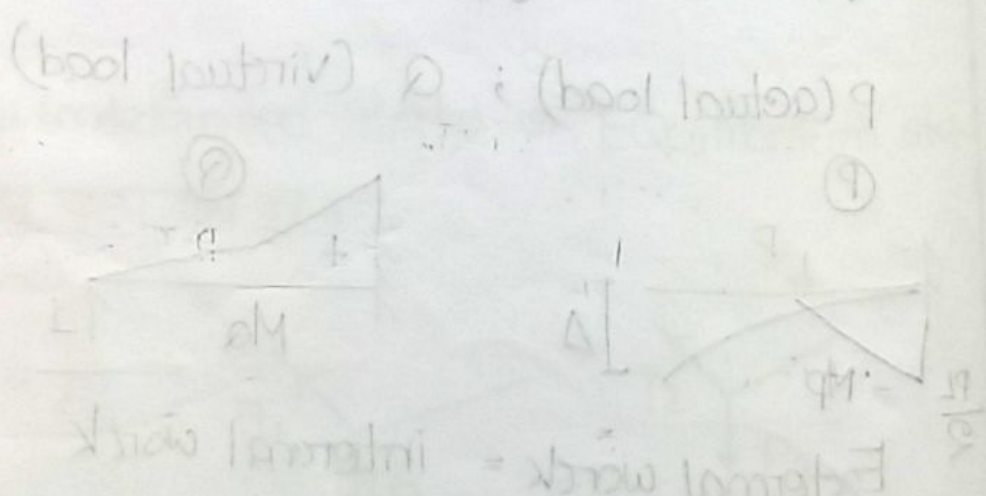 P (actual load) ; Q (virtual load)
P Q
P
1
Δ
MQ
Mp
External work = internal work